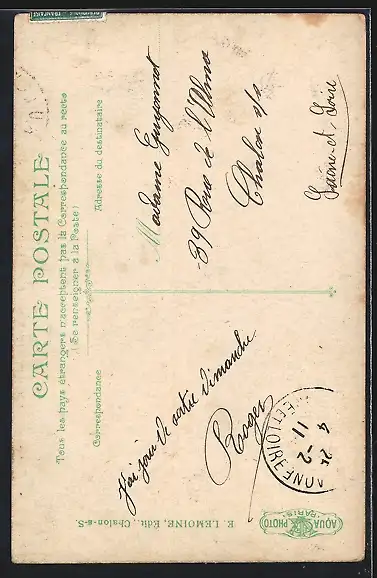 CARTE POSTALE
Tous les pays étrangers n'acceptent pas la Correspondance au recto
(Se renseigner à la Poste)
Correspondance
Adresse du destinataire
J'ai joui le sortie dimanche
Roger
Madame Guyonnet
39 Rue de l'Alma
Chalon s/s
Saône-et-Loire
ET-LOIRE
4 2E
11-2
E. LEMOINE, Édit., Chalon-s-S.
AQUA PHOTO
PARIS